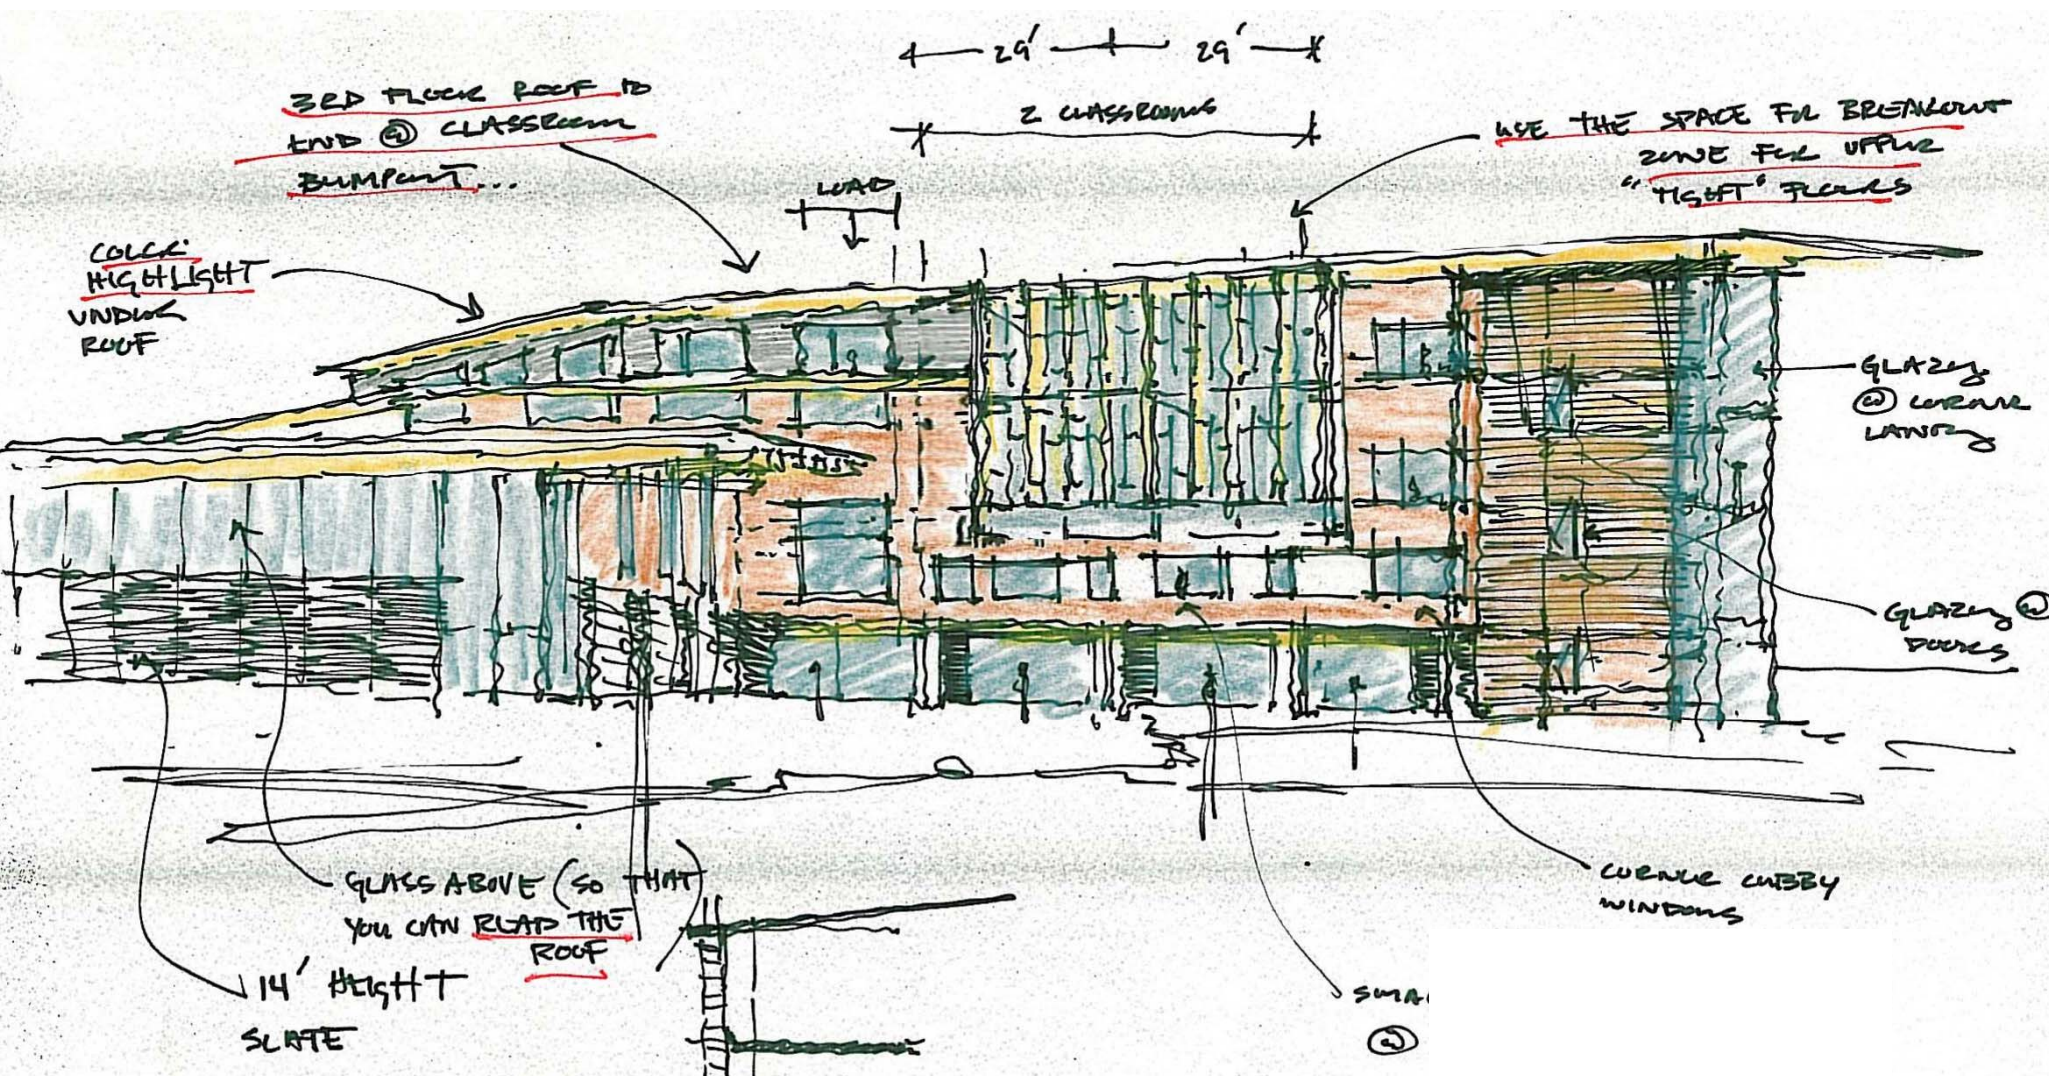 29' 29'
2 CLASSROOMS
3RD FLOOR ROOF TO
END @ CLASSROOM
BUMPOUT...
USE THE SPACE FOR BREAKOUT
ZONE FOR UPPER
"TIGHT" FLOORS
LOAD
COLOR
HIGHLIGHT
UNDER
ROOF
GLAZING
@ CORNER
LANDING
GLAZING @
DOORS
GLASS ABOVE (SO THAT
YOU CAN READ THE
ROOF)
14' HEIGHT
SLATE
CORNER CUBBY
WINDOWS
@